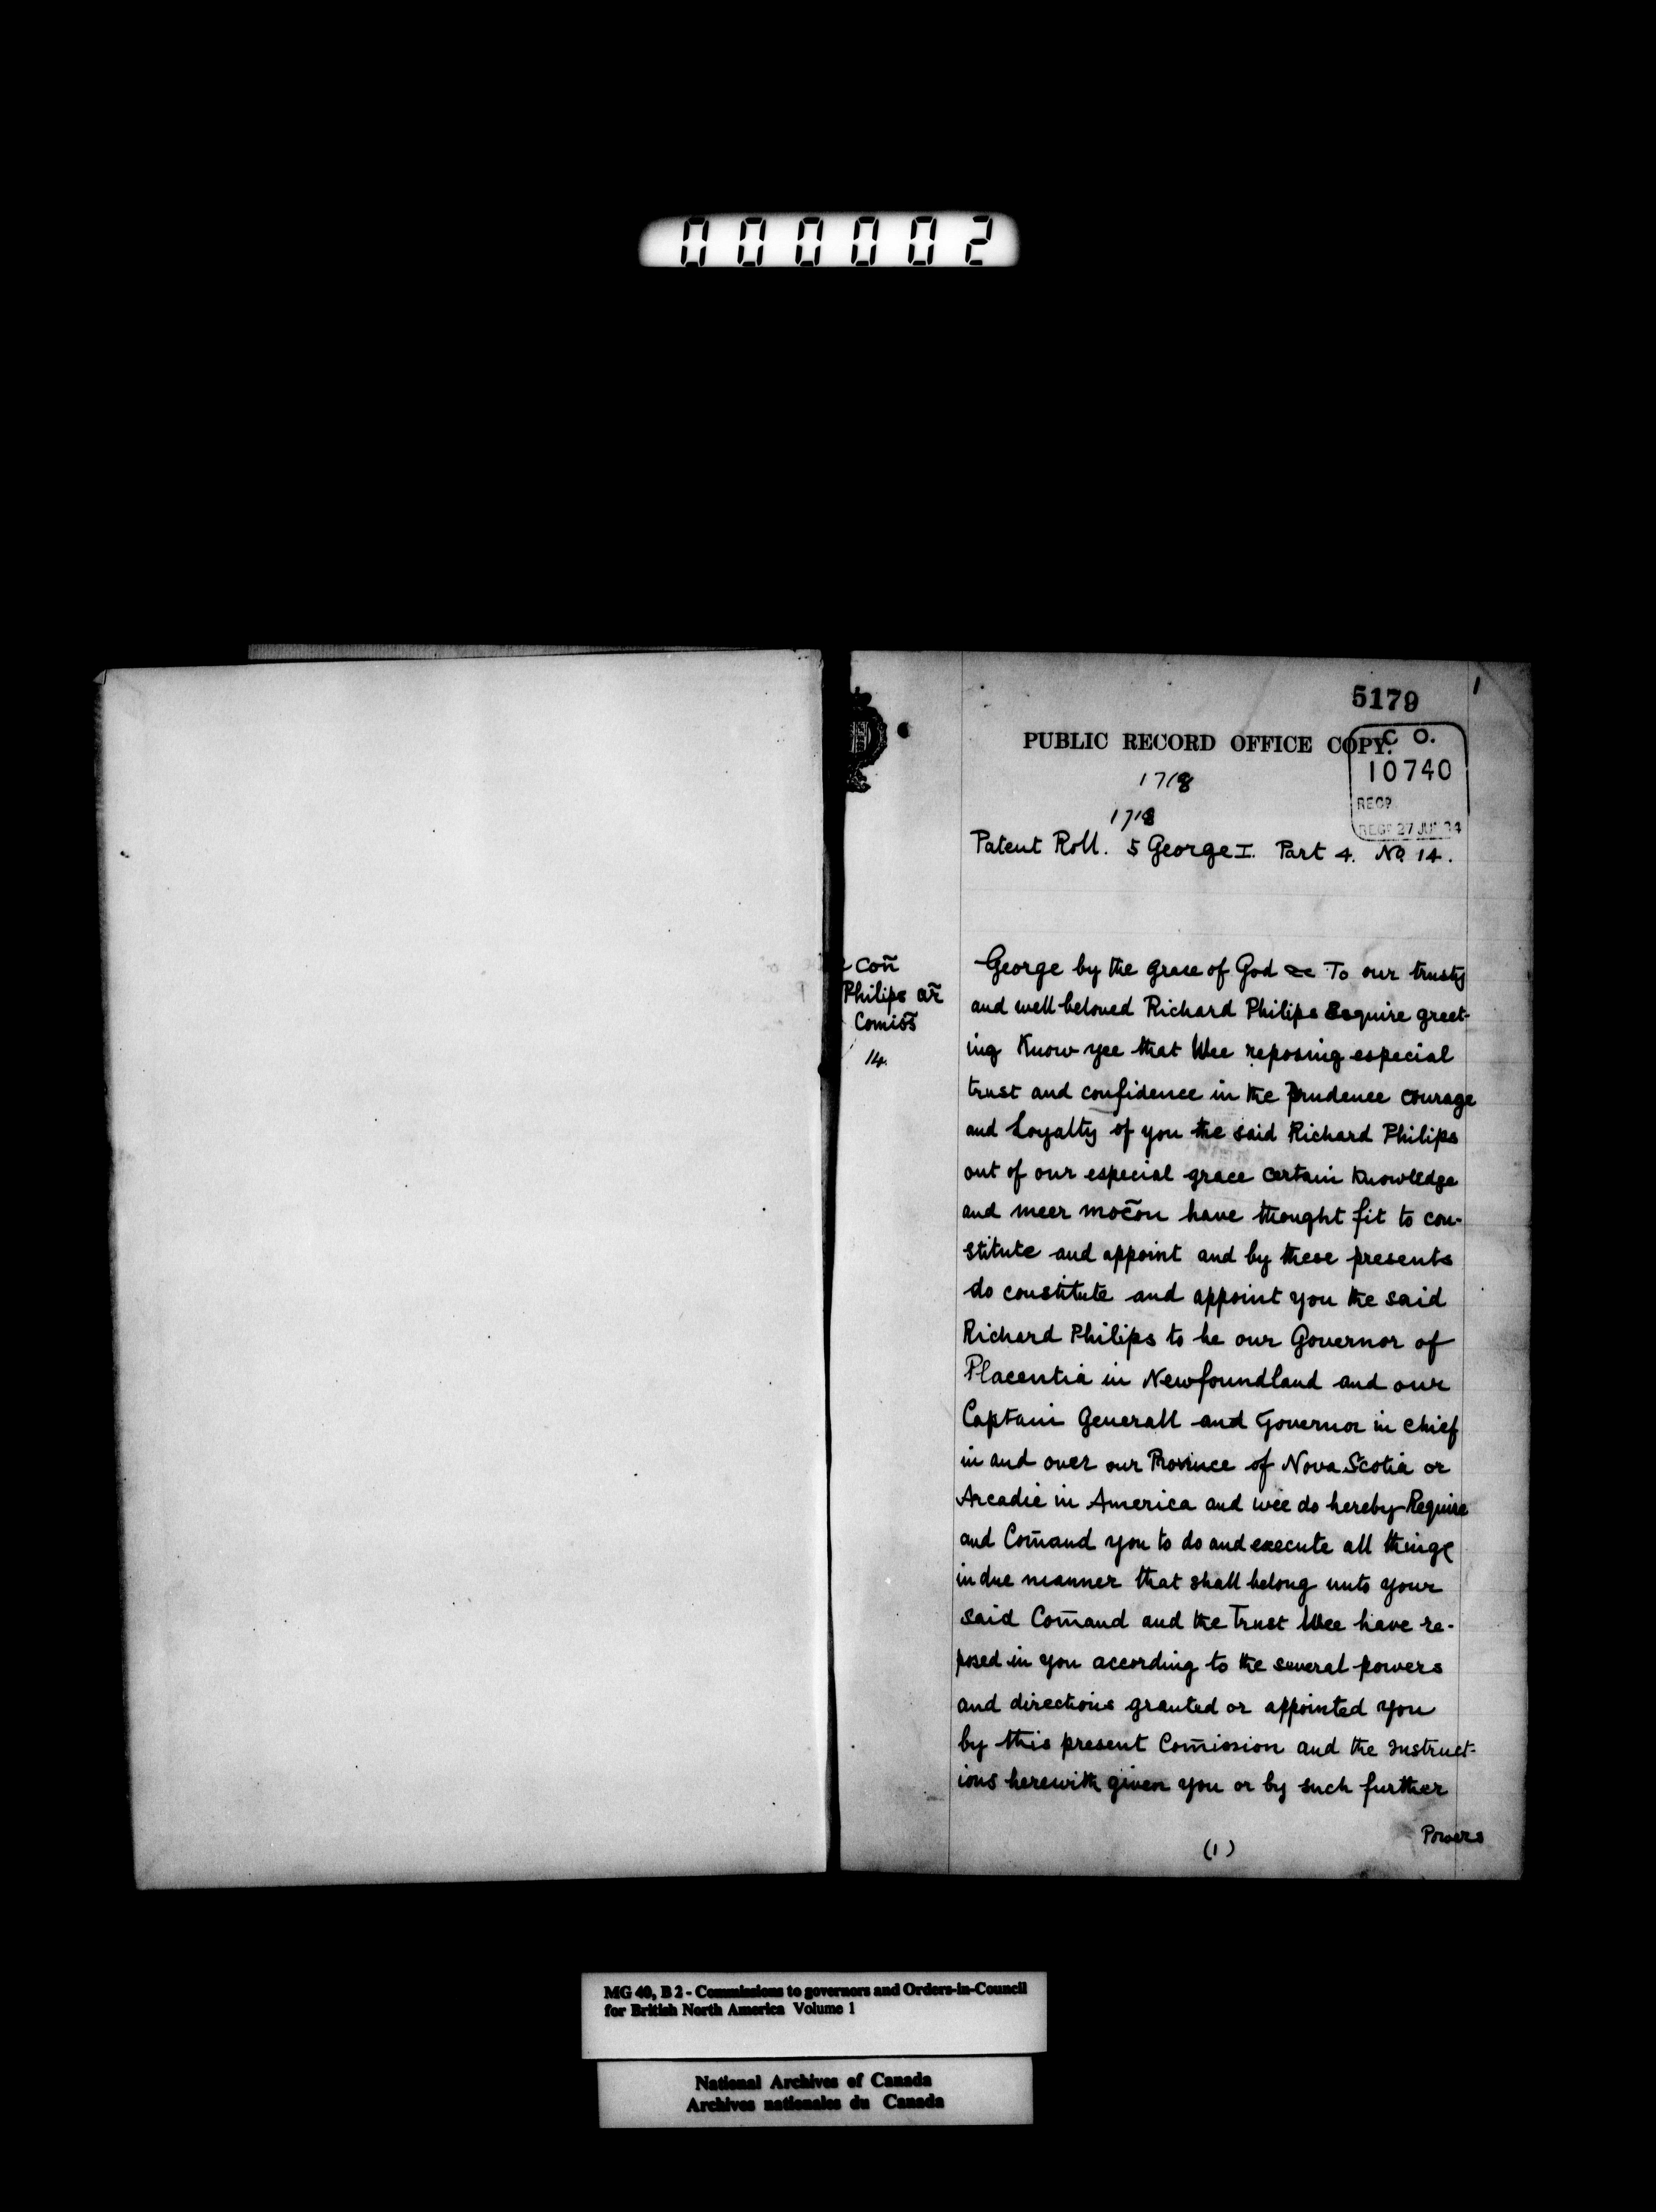 000002
5179
1
PUBLIC RECORD OFFICE COPY.
C O.
10740
RECD
REGD 27 JU 4
1718
1718
Patent Roll. 5 George I. Part 4. No. 14.
Con̄
Philips ar̄
Comis̄s
14.
George by the grace of God &c To our trusty
and well beloved Richard Philips Esquire greet-
ing Know yee that Wee reposing especial
trust and confidence in the Prudence courage
and Loyalty of you the said Richard Philips
out of our especial grace certain Knowledge
and meer moc̄on have thought fit to con-
stitute and appoint and by these presents
do constitute and appoint you the said
Richard Philips to be our Governor of
Placentia in Newfoundland and our
Captain Generall and Governor in chief
in and over our Province of Nova Scotia or
Arcadie in America and wee do hereby Require
and Com̄and you to do and execute all things
in due manner that shall belong unto your
said Com̄and and the Trust Wee have re-
posed in you according to the several powers
and directions granted or appointed you
by this present Com̄ission and the Instruct-
ions herewith given you or by such further
Powers
(1)
MG 40, B 2 - Commissions to governors and Orders-in-Council
for British North America Volume 1
National Archives of Canada
Archives nationales du Canada